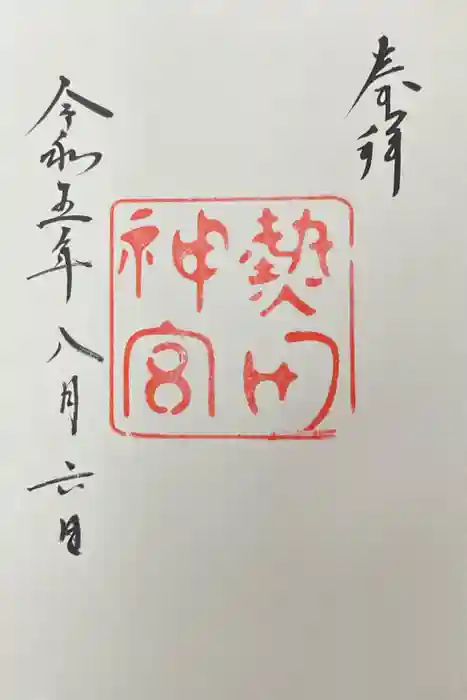 奉拝
熱田
神宮
令和五年八月六日